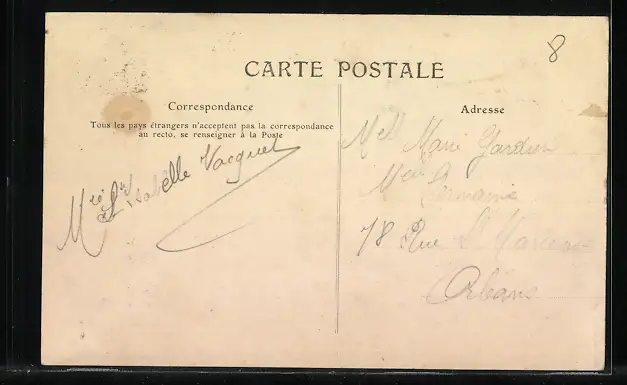 8
CARTE POSTALE
Correspondance
Tous les pays étrangers n'acceptent pas la correspondance
au recto, se renseigner à la Poste
Isabelle Vacquet
Adresse
Melle Marie
78 Rue St
Orléans